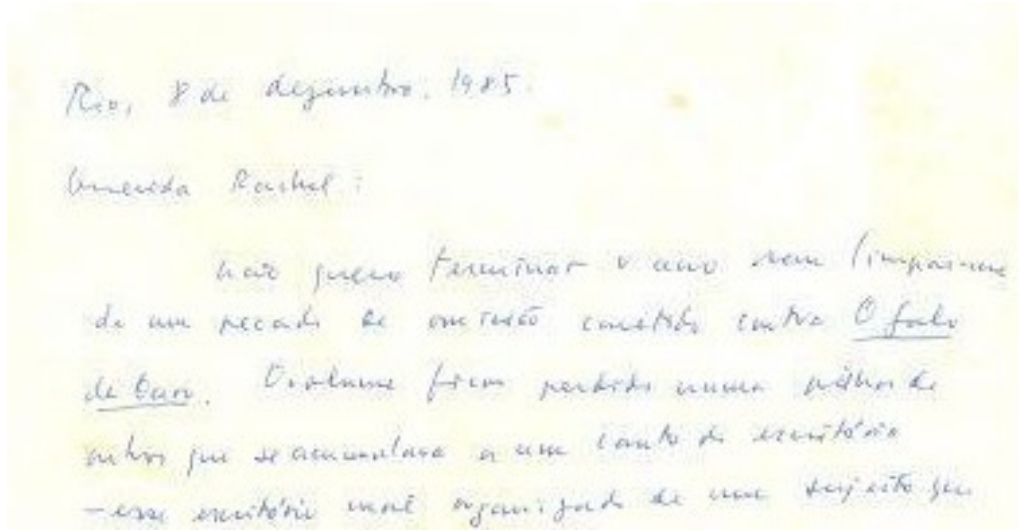 Rio, 8 de dezembro, 1985.
Querida Rachel:
não quero terminar o ano sem limpar-me
de um pecado de omissão cometido contra O galo
de Ouro. O volume ficou perdido numa pilha de
outros que se acumulava a um canto do escritório
- esse escritório mal organizado de um sujeito que